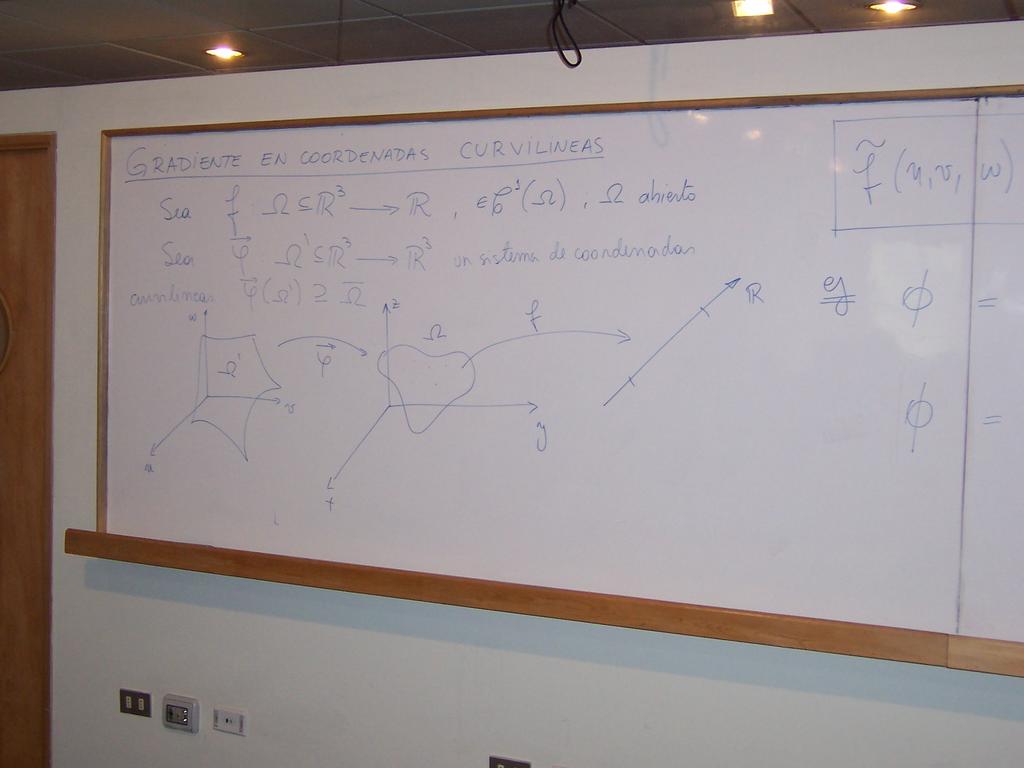 GRADIENTE EN COORDENADAS CURVILINEAS
Sea f: Ω ⊆ ℝ³ → ℝ, ∈ 𝒞¹(Ω), Ω abierto
Sea φ⃗: Ω' ⊆ ℝ³ → ℝ³ un sistema de coordenadas
curvilineas φ⃗(Ω') ⊇ Ω̅
w
Ω'
v
u
φ⃗
z
Ω
y
x
f
ℝ
f̃(u, v, w)
ej ϕ =
ϕ =